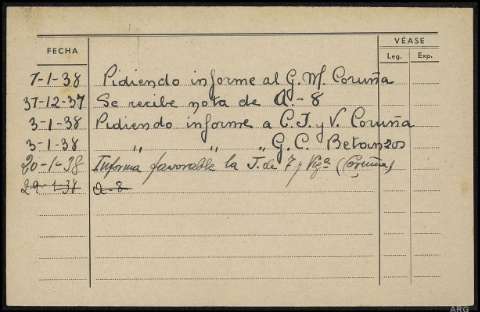 FECHA
VÉASE
Leg. Exp.
7-1-38 Pidiendo informe al G. M. Coruña
31-12-37 Se recibe nota de A.-8
3-1-38 Pidiendo informe a C. I. y V. Coruña
3-1-38 " " " G. C. Betanzos
20-1-38 Informa favorable la J. de I y Vigª (Coruña)
29-1-38 a-8
ARG